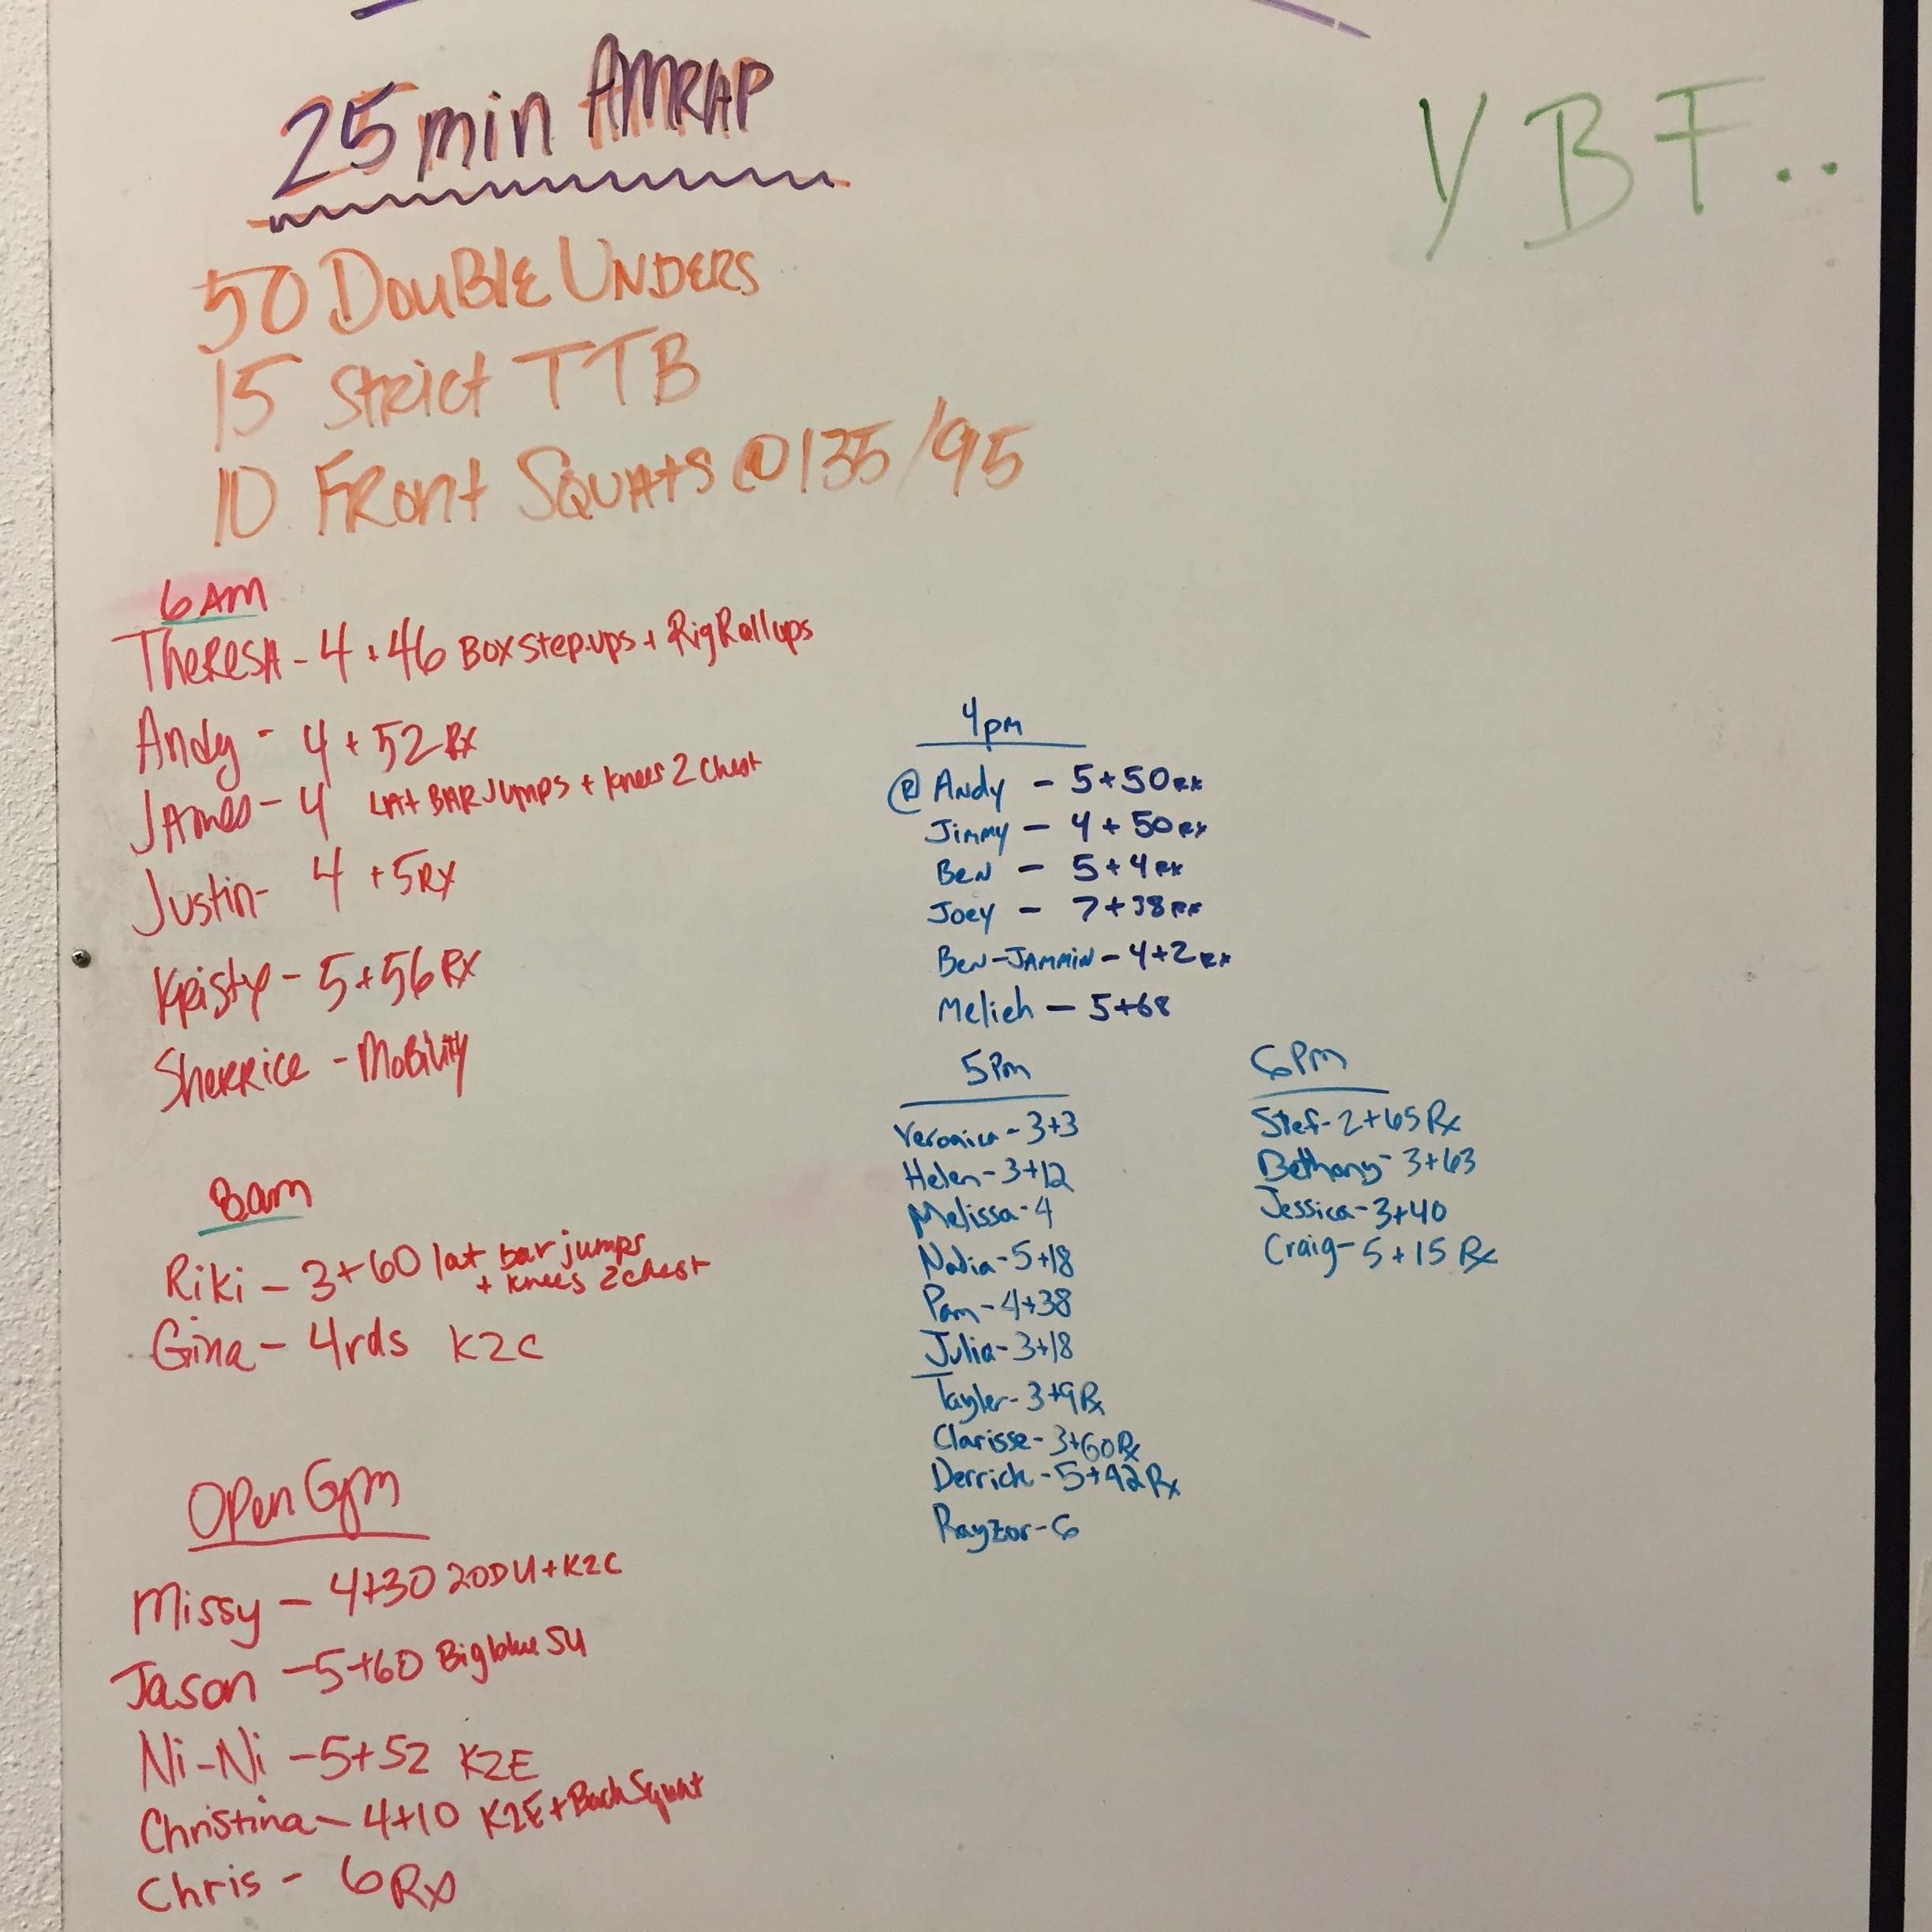 25 min AMRAP
YBF..
50 Double Unders
15 Strict TTB
10 Front Squats @135/95
6AM
Theresa - 4+46 Box Step-ups + Rig Rallups
Andy - 4+52 Rx
James - 4 Lat BAR Jumps + knees 2 chest
Justin - 4 +5 Rx
Kristy - 5+56 Rx
Sherrice - Mobility
8am
Riki - 3+60 lat bar jumps
+ knees 2 chest
Gina - 4rds K2C
Open Gym
Missy - 4+30 20DU+K2C
Jason - 5+60 Big blue SU
Ni-Ni - 5+52 K2E
Christina - 4+10 K2E+Back Squat
Chris - 6 Rx
4pm
@ Andy - 5+50 Rx
Jimmy - 4+50 Rx
Ben - 5+4 Rx
Joey - 7+38 Rx
Ben-Jammin - 4+2 Rx
Melieh - 5+68
5pm
Veronica - 3+3
Helen - 3+12
Melissa - 4
Nadia - 5+18
Pam - 4+38
Julia - 3+18
Tayler - 3+9 Rx
Clarisse - 3+60 Rx
Derrick - 5+42 Rx
Rayzor - 6
6pm
Stef - 2+65 Rx
Bethany - 3+63
Jessica - 3+40
Craig - 5+15 Rx